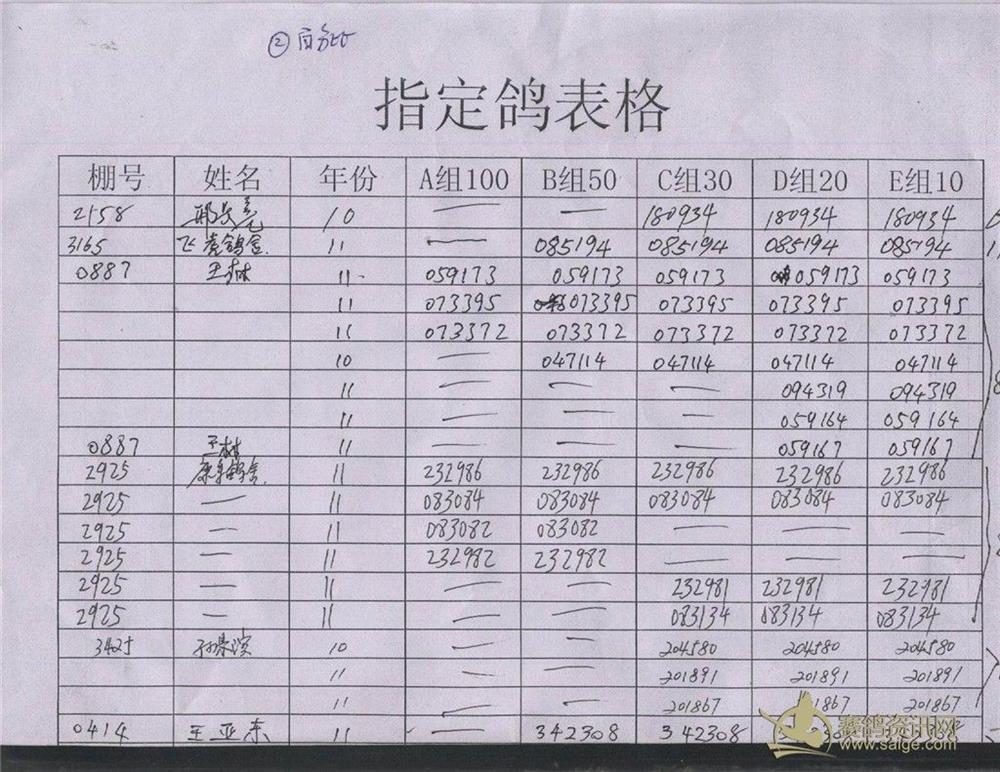 ② 百分比
指定鸽表格
棚号 姓名 年份 A组100 B组50 C组30 D组20 E组10
2158 10 — — 180934 180934 180934
3165 飞 鸽舍 11 — 085194 085194 085194 085194
0887 王林 11 059173 059173 059173 059173 059173
11 073395 073395 073395 073395 073395
11 073372 073372 073372 073372 073372
10 — 047114 047114 047114 047114
11 — — — 094319 094319
11 — — — 059164 059164
0887 王林 11 — — — 059167 059167
2925 鸽舍 11 232986 232986 232986 232986 232986
2925 — 11 083084 083084 083084 083084 083084
2925 — 11 083082 083082 — — —
2925 — 11 232982 232982 — — —
2925 — 11 — — 232981 232981 232981
2925 — 11 — — 083134 083134 083134
3425 孙 滨 10 — — 204580 204580 204580
11 — — 201891 201891 201891
11 — — 201867 1867 201867
0414 王亚东 11 — 342308 342308
赛鸽资讯网
www.saige.com